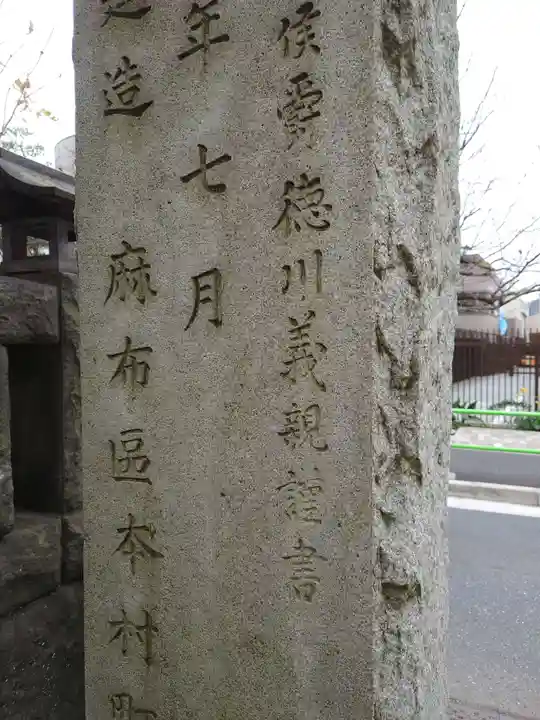 侯爵徳川義親謹書
年七月
造 麻布區本村町